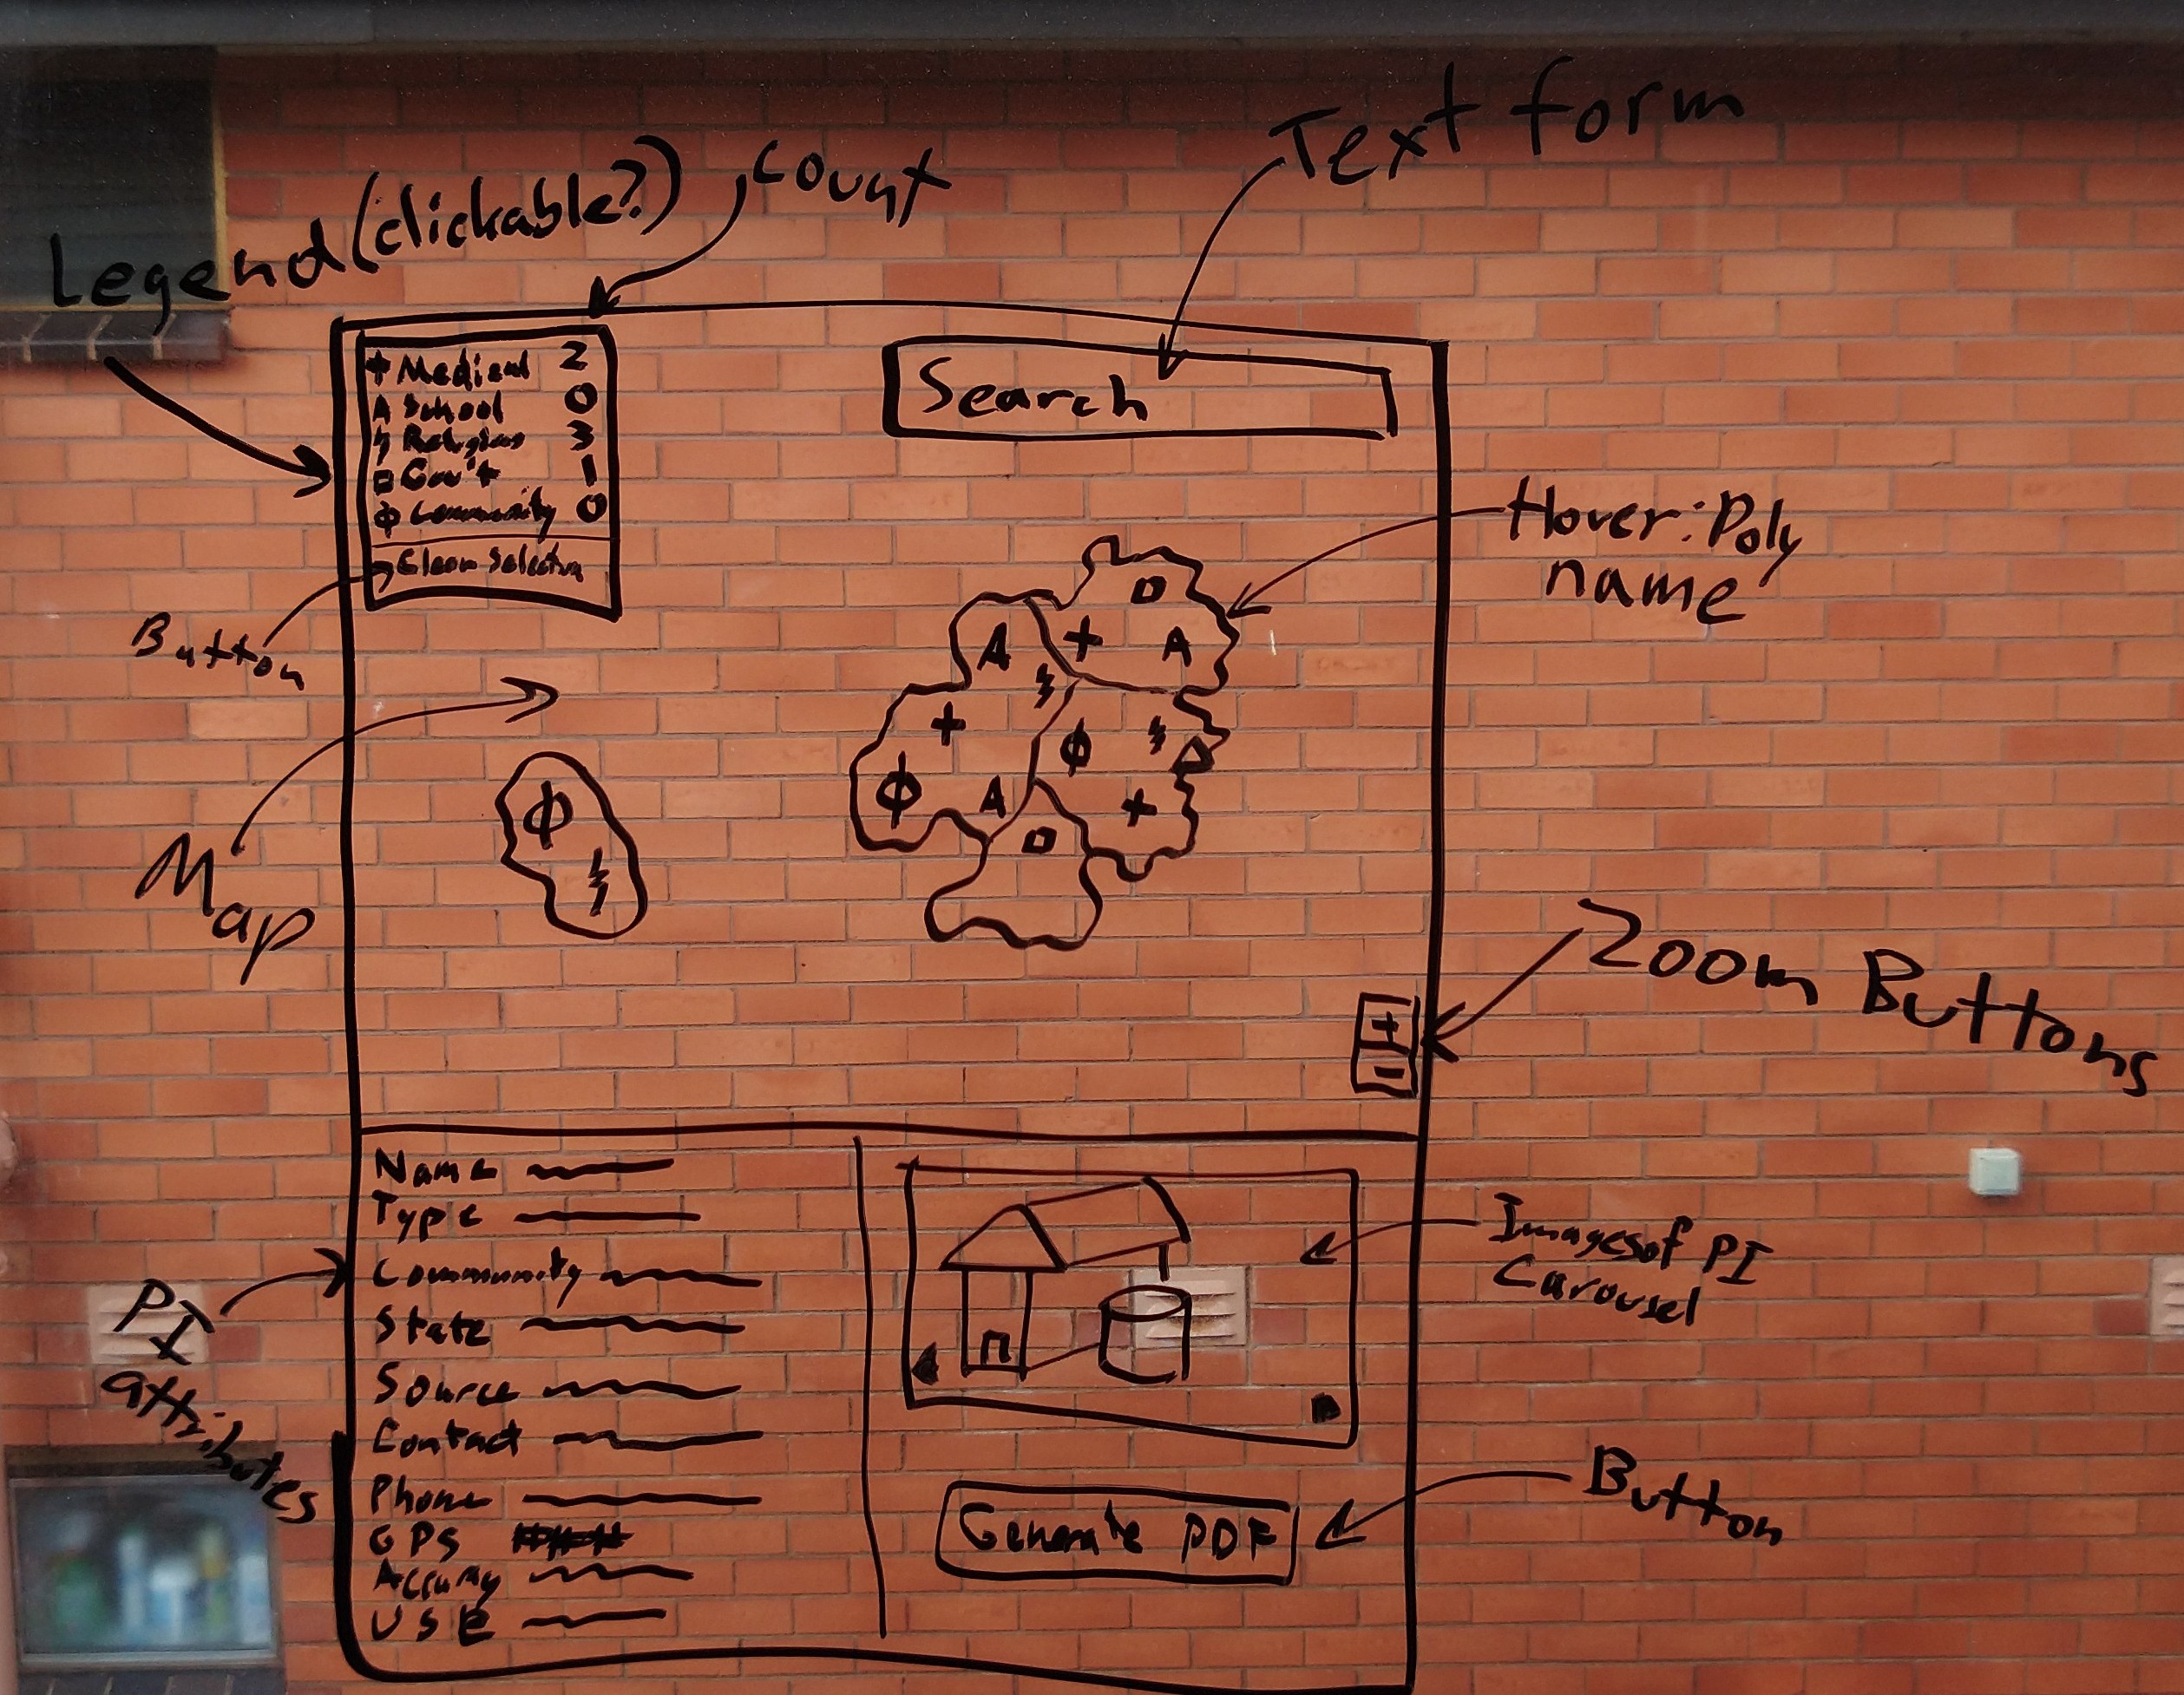 Text form
count
Legend (clickable?)
Medical 2
A School 0
Religious 3
Gov't 1
Community 0
Clear Selection
Search
Button
Hover: Poly
name
Map
A + A
+
A
+
Zoom Buttons
+
-
Name
Type
Community
State
Source
Contact
Phone
GPS
Accuracy
USE
PI
attributes
Images of PI
Carousel
Generate PDF
Button